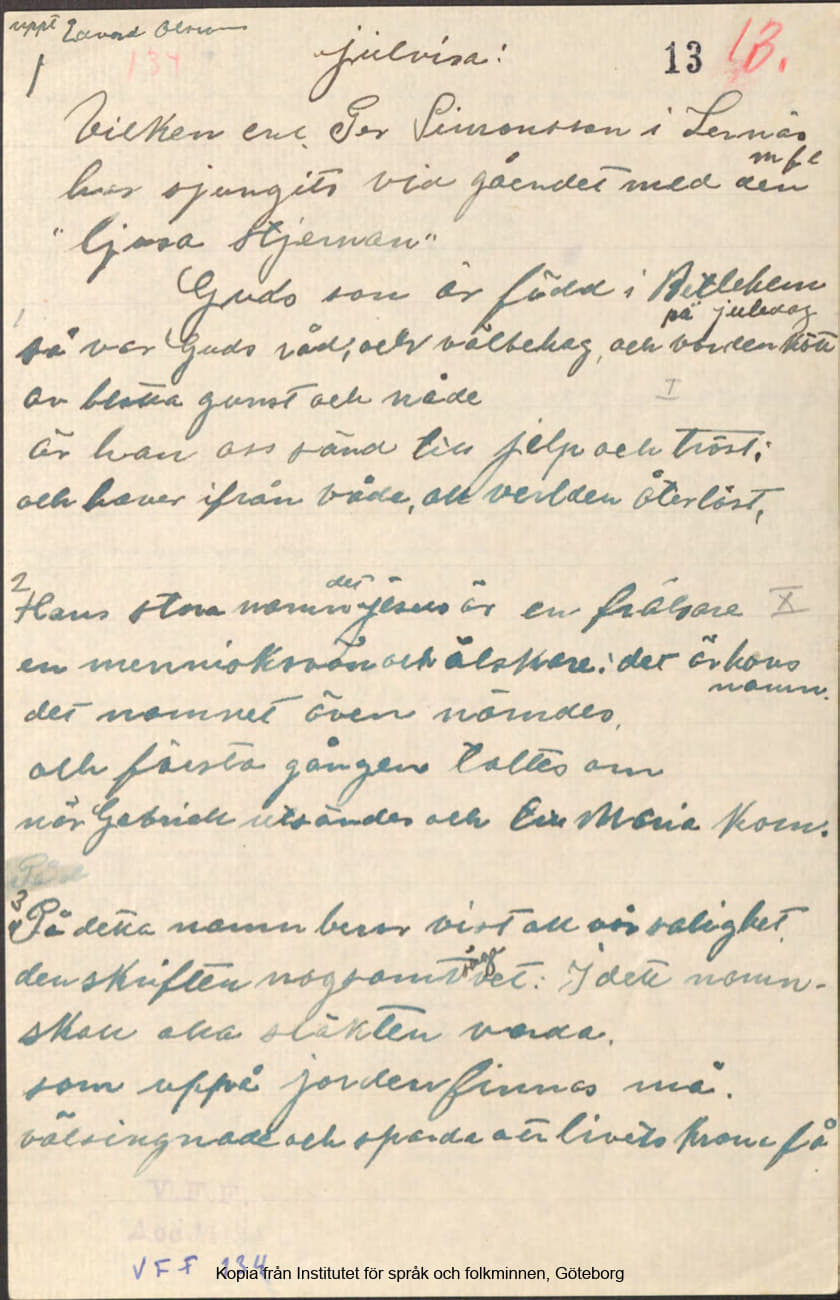 uppt Edvard Olsson
1 134 julvisa: 13 13.
Vilken enl. Per Simonsson i Lernäs
m fl
har sjungits vid gåendet med den
"ljusa stjernan"
Guds son är född i Betlehem
på juledag
1 så var Guds råd; och välbehag, och vorden kött
av blotta gunst och nåde I
är han oss sänd till jelp och tröst;
och haver ifrån våda, all verlden återlöst,
2 det
Hans stora namn Jesus är en frälsare X
en menniskovän och älskare: det är hans
namn.
det namnet även nämdes,
och första gången taltes om
när Gabriell utsändes och till Maria kom.
3
På detta namn beror vist all vår salighet
säga
den skriften nogsamt vet: I dett namn
skall alla släkten varda.
som uppå jorden finnas må.
välsingnade och sparda att livets krona få
V.F.F.
VFF 134
Kopia från Institutet för språk och folkminnen, Göteborg